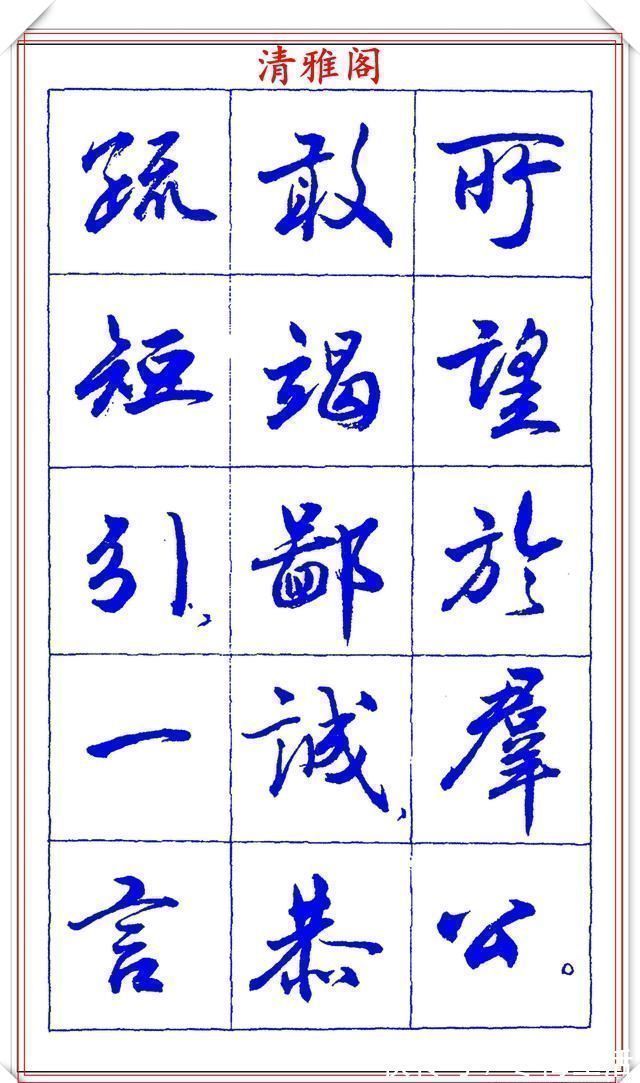 清雅阁
所望於羣公。
敢竭鄙誠，恭
疏短引，一言